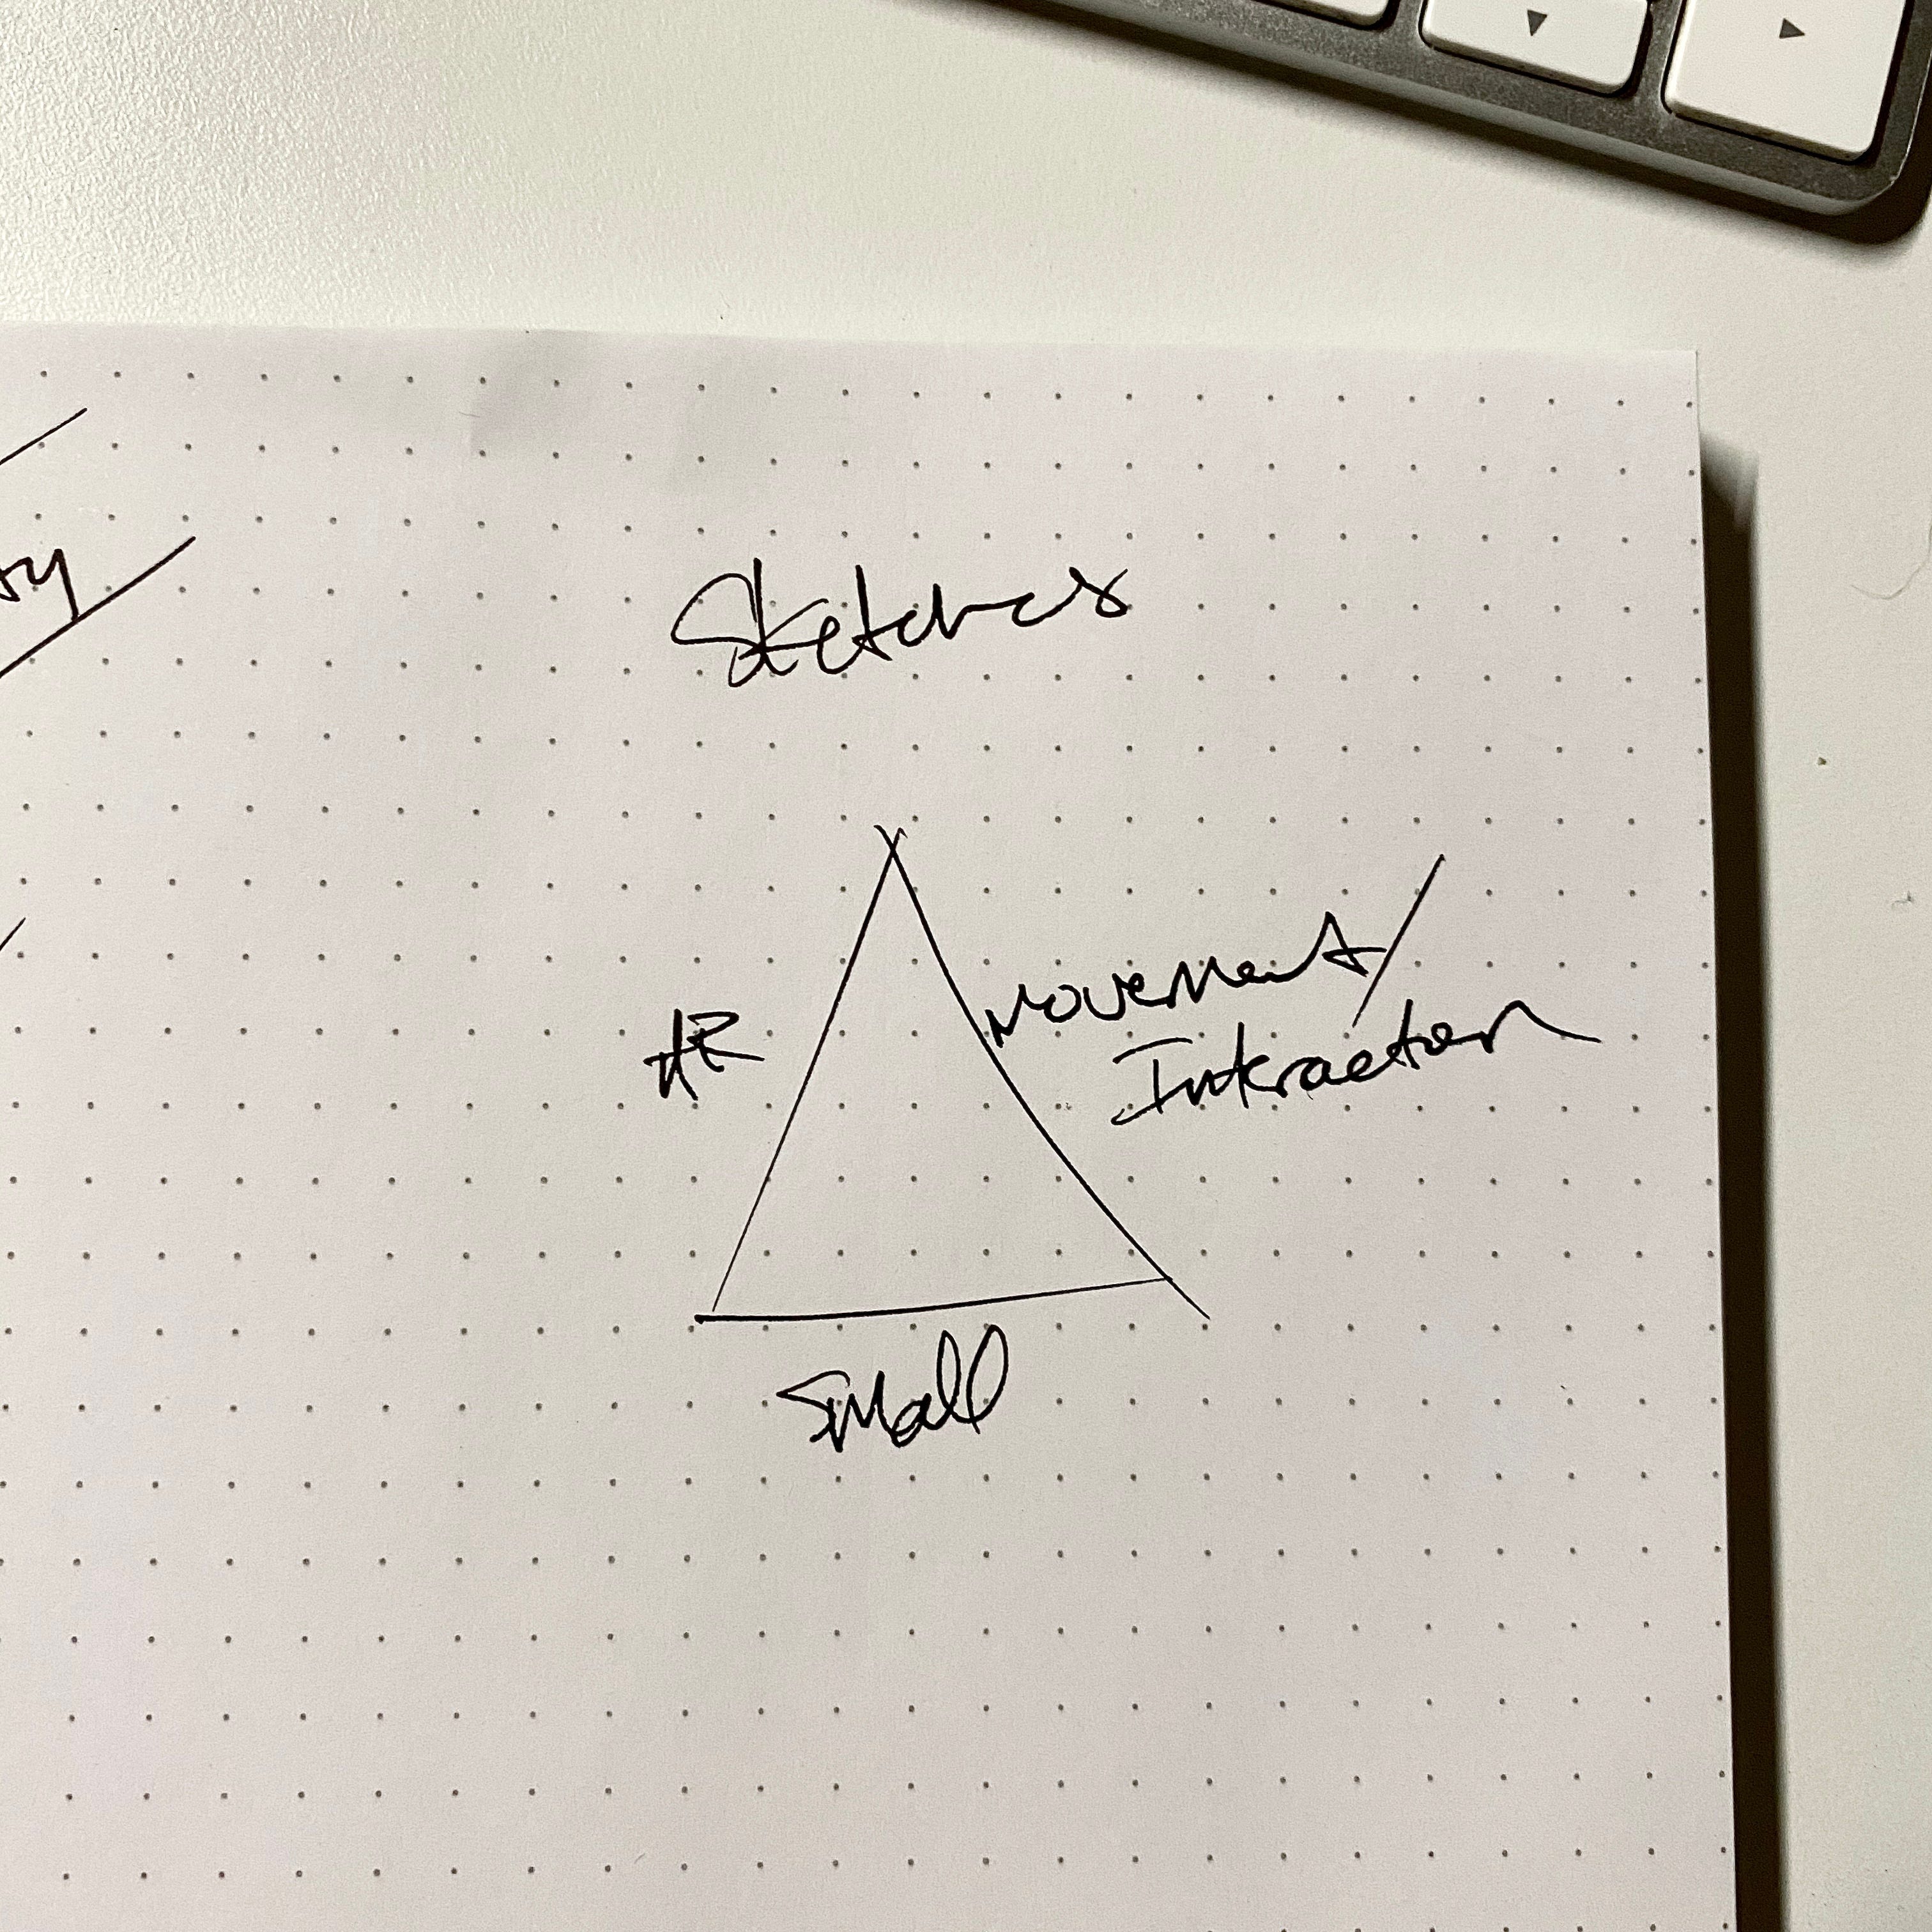 Sketches
AR
Movement/
Interaction
Small